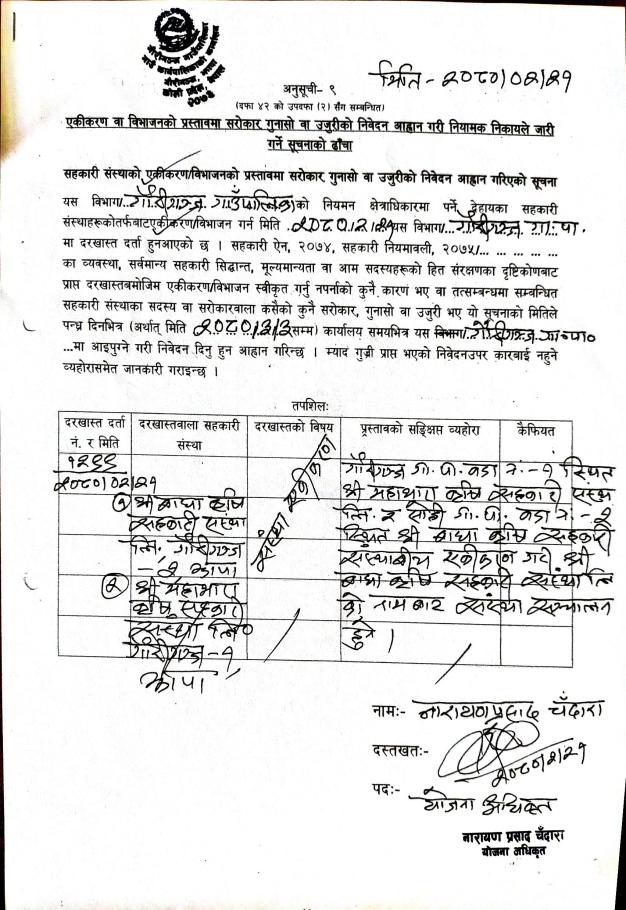 गौरीगञ्ज गाउँपालिका
गाउँ कार्यपालिकाको कार्यालय
गौरीगञ्ज, झापा
कोशी प्रदेश, नेपाल
२०७३
मिति - २०८०/०२/२१
अनुसूची- ९
(दफा ४२ को उपदफा (२) सँग सम्बन्धित)
एकीकरण वा विभाजनको प्रस्तावमा सरोकार गुनासो वा उजुरीको निवेदन आह्वान गरी नियामक निकायले जारी
गर्ने सूचनाको ढाँचा
सहकारी संस्थाको एकीकरण/विभाजनको प्रस्तावमा सरोकार गुनासो वा उजुरीको निवेदन आह्वान गरिएको सूचना
यस विभाग/.. गौरीगञ्ज गाउँपालिका को नियमन क्षेत्राधिकारमा पर्ने देहायका सहकारी
संस्थाहरूकोतर्फबाटएकीकरण/विभाजन गर्न मिति .२०८०।२।२१ यस विभाग/... गौरीगञ्ज गा.पा.
मा दरखास्त दर्ता हुनआएको छ । सहकारी ऐन, २०७४, सहकारी नियमावली, २०७५/... ... ... ... ...
का व्यवस्था, सर्वमान्य सहकारी सिद्धान्त, मूल्यमान्यता वा आम सदस्यहरूको हित संरक्षणका दृष्टिकोणबाट
प्राप्त दरखास्तबमोजिम एकीकरण/विभाजन स्वीकृत गर्नु नपर्नाको कुनै कारण भए वा तत्सम्बन्धमा सम्बन्धित
सहकारी संस्थाका सदस्य वा सरोकारवाला कसैको कुनै सरोकार, गुनासो वा उजुरी भए यो सूचनाको मितिले
पन्ध्र दिनभित्र (अर्थात् मिति २०८०/३/३ सम्म) कार्यालय समयभित्र यस विभाग/.. गौरीगञ्ज गा॰पा॰
...मा आइपुग्ने गरी निवेदन दिनु हुन आह्वान गरिन्छ । म्याद गुज्री प्राप्त भएको निवेदनउपर कारबाई नहुने
व्यहोरासमेत जानकारी गराइन्छ ।
तपशिलः
दरखास्त दर्ता नं. र मिति
दरखास्तवाला सहकारी संस्था
दरखास्तको विषय
प्रस्तावको सङ्क्षिप्त व्यहोरा
कैफियत
१२९९
२०८०/०२/२१
① श्री बाघा कृषि
सहकारी संस्था
लि. गौरीगञ्ज
- २ झापा
② श्री महाभारा
कृषि सहकारी
संस्था लि॰
गौरीगञ्ज -१
झापा
संस्था एकीकरण
गौरीगञ्ज गा. पा. वडा नं. -१ स्थित
श्री महाभारा कृषि सहकारी संस्था
लि. र सोही गा. पा. वडा नं. - २
स्थित श्री बाघा कृषि सहकारी
संस्थाबीच एकीकरण गरी श्री
बाघा कृषि सहकारी संस्था लि
को नामबाट संस्था सञ्चालन
हुने ।
नामः- नारायण प्रसाद चँदारा
दस्तखतः-
२०८०/२/२१
पदः- योजना अधिकृत
नारायण प्रसाद चँदारा
योजना अधिकृत